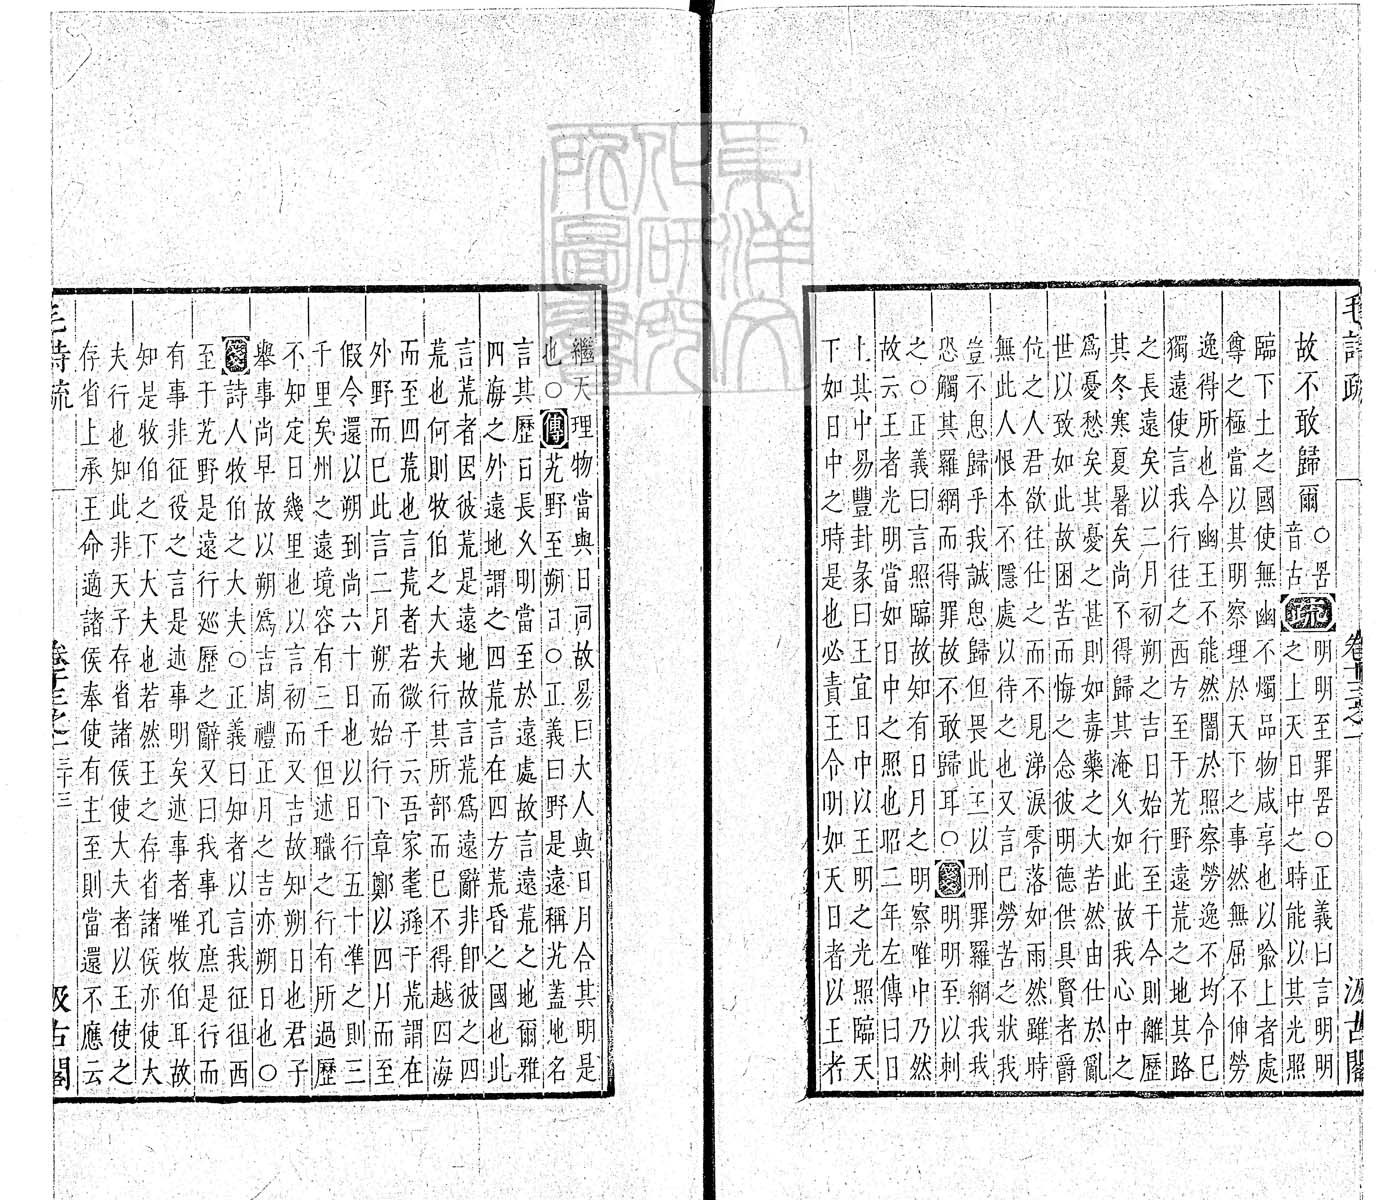 毛詩疏
卷十三之一
汲古閣
故不敢歸爾○罟音古疏明明至罪罟○正義曰言明明
之上天日中之時能以其光照
臨下土之國使無幽不燭品物咸享也以喻上者處
尊之極當以其明察理於天下之事然無屈不伸勞
逸得所也今幽王不能然闇於照察勞逸不均令巳
獨遠使言我行往之西方至于艽野遠荒之地其路
之長遠矣以二月初朔之吉日始行至于今則離歷
其冬寒夏暑矣尚不得歸其淹久如此故我心中之
爲憂愁矣其憂之甚則如毒藥之大苦然由仕於亂
世以致如此故困苦而悔之念彼明德供具賢者爵
位之人君欲往仕之而不見涕淚零落如雨然雖時
無此人恨本不隱處以待之也又言巳勞苦之狀我
豈不思歸乎我誠思歸但畏此王以刑罪羅網我我
恐觸其羅網而得罪故不敢歸耳○箋明明至以刺
之○正義曰言照臨故知有日月之明察唯中乃然
故云王者光明當如日中之照也昭二年左傳曰日
上其中易豐封彖曰王宜日中以王明之光照臨天
下如日中之時是也必責王令明如天日者以王者
繼天理物當與日同故易曰大人與日月合其明是
也○傳艽野至朔日○正義曰野是遠稱艽蓋地名
言其歷日長久明當至於遠處故言遠荒之地爾雅
四海之外遠地謂之四荒言在四方荒昏之國也此
言荒者因彼荒是遠地故言荒爲遠辭非卽彼之四
荒也何則牧伯之大夫行其所部而巳不得越四海
而至四荒也言荒者若微子云吾家耄遜于荒謂在
外野而巳此言二月朔而始行下章鄭以四月而至
假令還以朔到尚六十日也以日行五十準之則三
千里矣州之遠境容有三千但述職之行有所過歷
不知定日幾里也以言初而又吉故知朔日也君子
舉事尚早故以朔爲吉周禮正月之吉亦朔日也○
箋詩人牧伯之大夫○正義曰知者以言我征徂西
至于艽野是遠行廵歷之辭又曰我事孔庶是行而
有事非征役之言是述事明矣述事者唯牧伯耳故
知是牧伯之下大夫也若然王之存省諸侯亦使大
夫行也知此非天子存省諸侯使大夫者以王使之
存省上承王命適諸侯奉使有主至則當還不應云
毛詩疏
卷十三之一
三十三
汲古閣